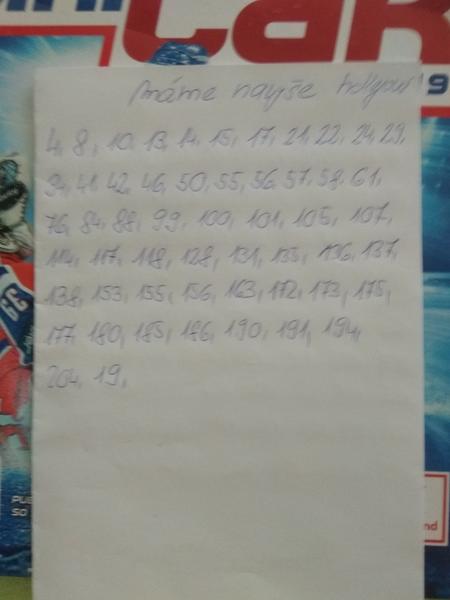 CAR
9
máme navyše
4, 8, 10, 13, 14, 15, 17, 21, 22, 24, 29,
34, 41, 42, 46, 50, 55, 56, 57, 58, 61,
76, 84, 88, 99, 100, 101, 105, 107,
114, 117, 118, 128, 131, 135, 136, 137,
138, 153, 155, 156, 163, 172, 173, 175,
177, 180, 185, 186, 190, 191, 194,
204, 19,